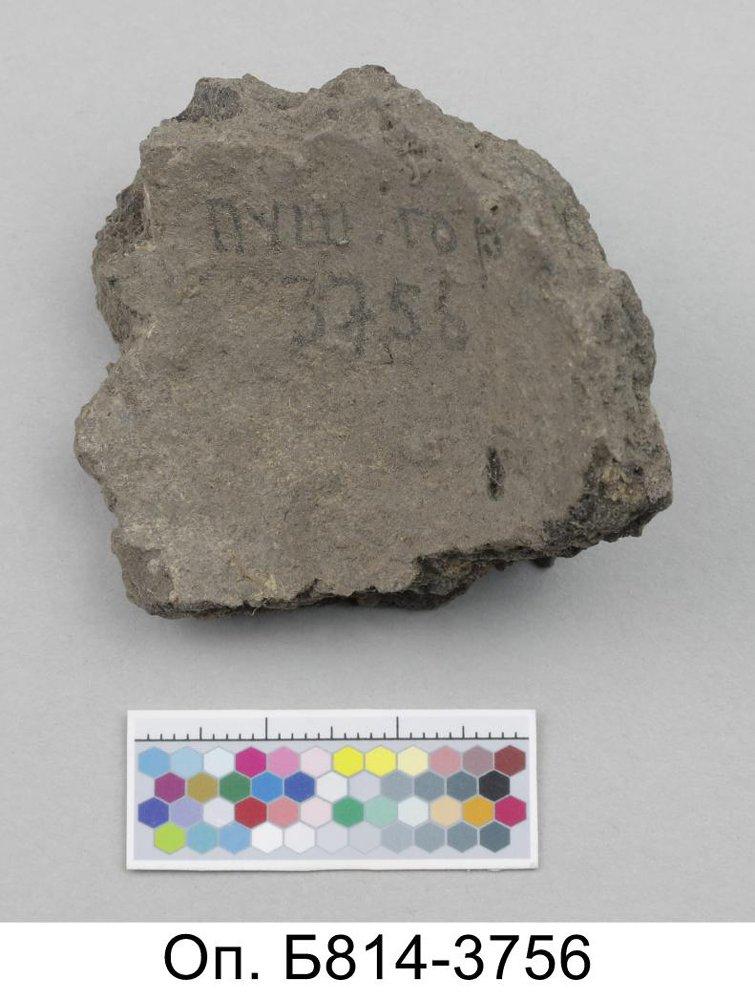 ПУШ. гор
3756
Оп. Б814-3756